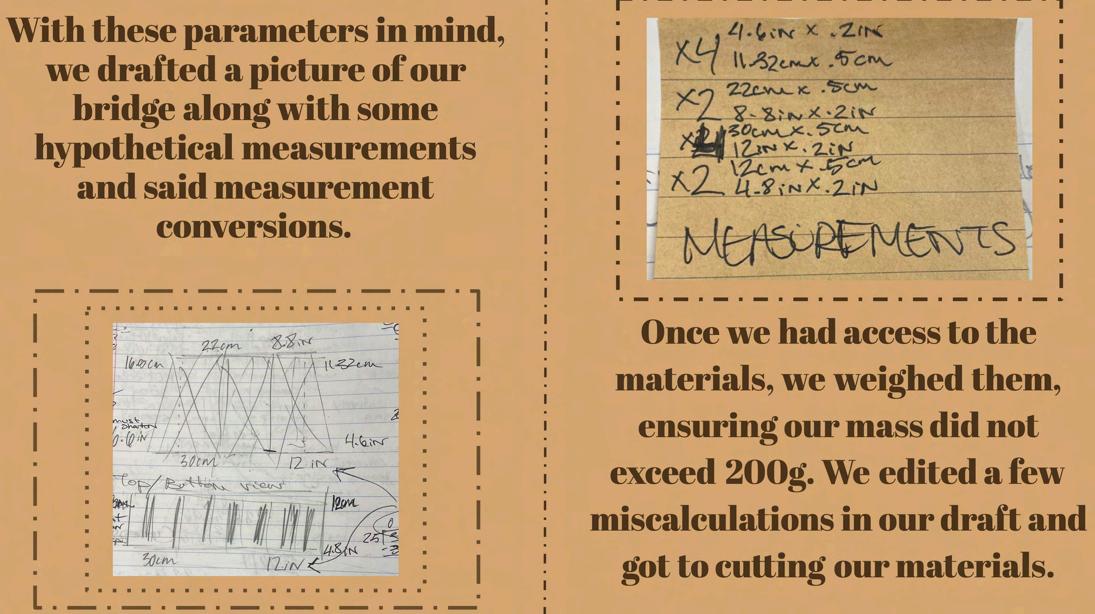 With these parameters in mind,
we drafted a picture of our
bridge along with some
hypothetical measurements
and said measurement
conversions.
22cm 8.8in
11.32cm
4.6in
30cm 12 IN
Top/Bottom view
12cm
4.8IN
30cm 12IN
4.6in x .2in
x4
11.32cm x .5cm
22cm x .5cm
x2
8.8in x .2in
30cm x .5cm
12in x .2in
12cm x .5cm
x2
4.8in x .2in
MEASUREMENTS
Once we had access to the
materials, we weighed them,
ensuring our mass did not
exceed 200g. We edited a few
miscalculations in our draft and
got to cutting our materials.